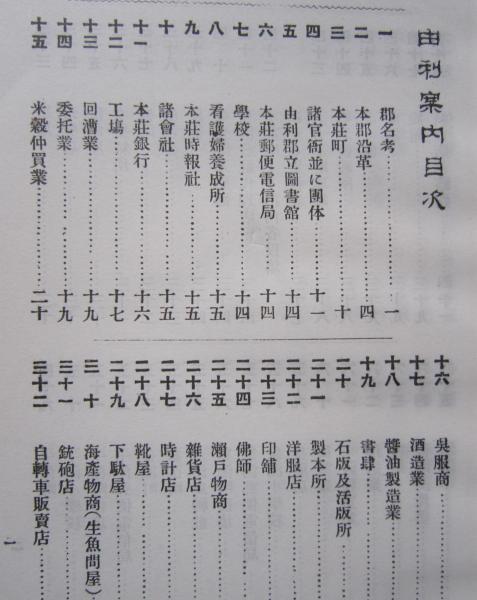 由利案内目次
一 郡名考……………一
二 本郡沿革……………四
三 本荘町……………十
四 諸官衙並に團体……………十一
五 由利郡立圖書館……………十四
六 本莊郵便電信局……………十四
七 學校……………十四
八 看護婦養成所……………十五
九 本莊時報社……………十五
十 諸會社……………十五
十一 本莊銀行……………十六
十二 工塲……………十七
十三 回漕業……………十九
十四 委托業……………十九
十五 米穀仲買業……………二十
十六 吳服商……………
十七 酒造業……………
十八 醬油製造業……………
十九 書肆……………
二十 石版及活版所……………
二十一 製本所……………
二十二 洋服店……………
二十三 印舖……………
二十四 佛師……………
二十五 瀨戶物商……………
二十六 雜貨店……………
二十七 時計店……………
二十八 靴屋……………
二十九 下駄屋……………
三十 海產物商(生魚問屋)……………
三十一 銃砲店……………
三十二 自轉車販賣店……………
一